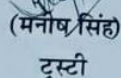 (मनीष सिंह)
ट्रस्टी